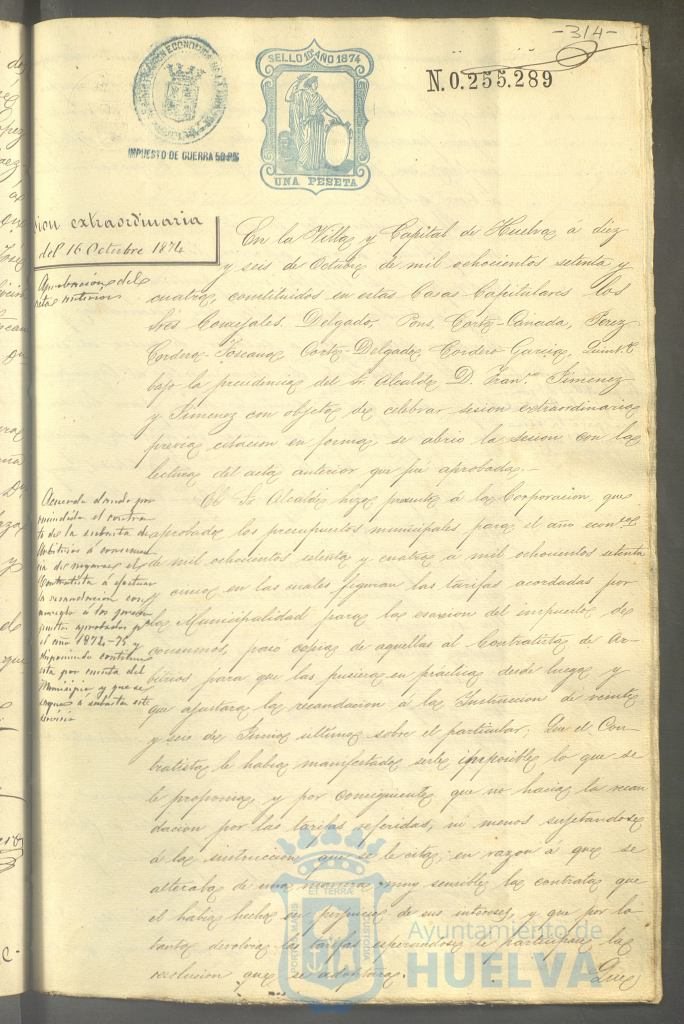 -314-
SELLO 10º AÑO 1874
N.0.255.289
IMPUESTO DE GUERRA 50 
UNA PESETA
sion extraordinaria
del 16 Octubre 1874
Aprobacion del
acta anterior
En la Villa y Capital de Huelva á diez
y seis de Octubre de mil ochocientos setenta y
cuatro, constituidos en estas Casas Capitulares los
Sres Concejales. Delgado, Pons, Cortes-Cañada, Perez
Cordero-Toscano Cortes-Delgado Cordero Garcia, 
bajo la presidencia del Sr. Alcalde D. Franco Jimenez
y Jimenez con objeto de celebrar sesion extraordinaria
previa citacion en forma, se abrió la sesion con la
lectura del acta anterior que fué aprobada.-
Acuerda dando por
rescindido el contra-
to de la subasta de
Arbitrios á consecuen-
cia de negarse el
Contratista á efectuar
la recaudacion con
arreglo á los presu-
puestos aprobados pa
el año 1874-75 y
disponiendo continue
esta por cuenta del
Municipio y que se
saque á subasta este
servicio
El Sr Alcalde hizo presente á la Corporacion, que
aprobados los presupuestos municipales para el año econco
de mil ochocientos setenta y cuatro á mil ochocientos setenta
y cinco en los cuales figuran las tarifas acordadas por
la Municipalidad para la exaccion del impuesto de
consumos, paso copias de aquellas al Contratista de Ar-
bitrios para que las pusiera en práctica desde luego y
que ajustara la recaudacion á la Instruccion de veinte
y seis de Junio ultimo sobre el particular; Que el Con-
tratista le habia manifestado serle imposible lo que se
le proponia y por consiguiente que no hacia la recau
dacion por las tarifas referidas, ni menos sujetandose
á la instruccion que se le cita, en razon á que se
alteraba de una manera muy sensible la contrata que
el habia hecho en perjuicio de sus intereses, y que por lo
tanto devolvia las tarifas esperandose le participare la
resolucion que se adoptara.
Que
PORTUS MARIS
ET TERRÆ
CUSTODIA
Ayuntamiento de
HUELVA